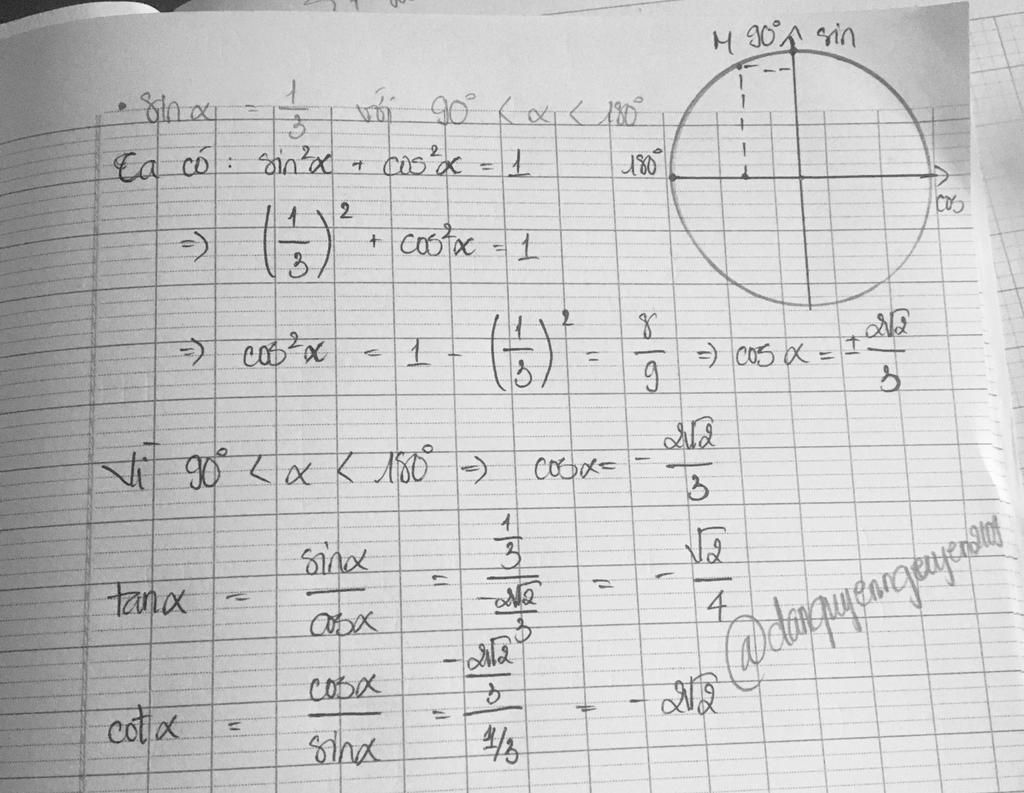 • sin α = 1/3 với 90° < α < 180°
Ta có: sin²α + cos²α = 1
=> (1/3)² + cos²α = 1
=> cos²α = 1 - (1/3)² = 8/9 => cos α = ± 2√2/3
Vì 90° < α < 180° => cosα = - 2√2/3
tanα = sinα/cosα = (1/3)/(-2√2/3) = - √2/4
cot α = cosα/sinα = (-2√2/3)/(1/3) = - 2√2
M 90° sin
180°
cos